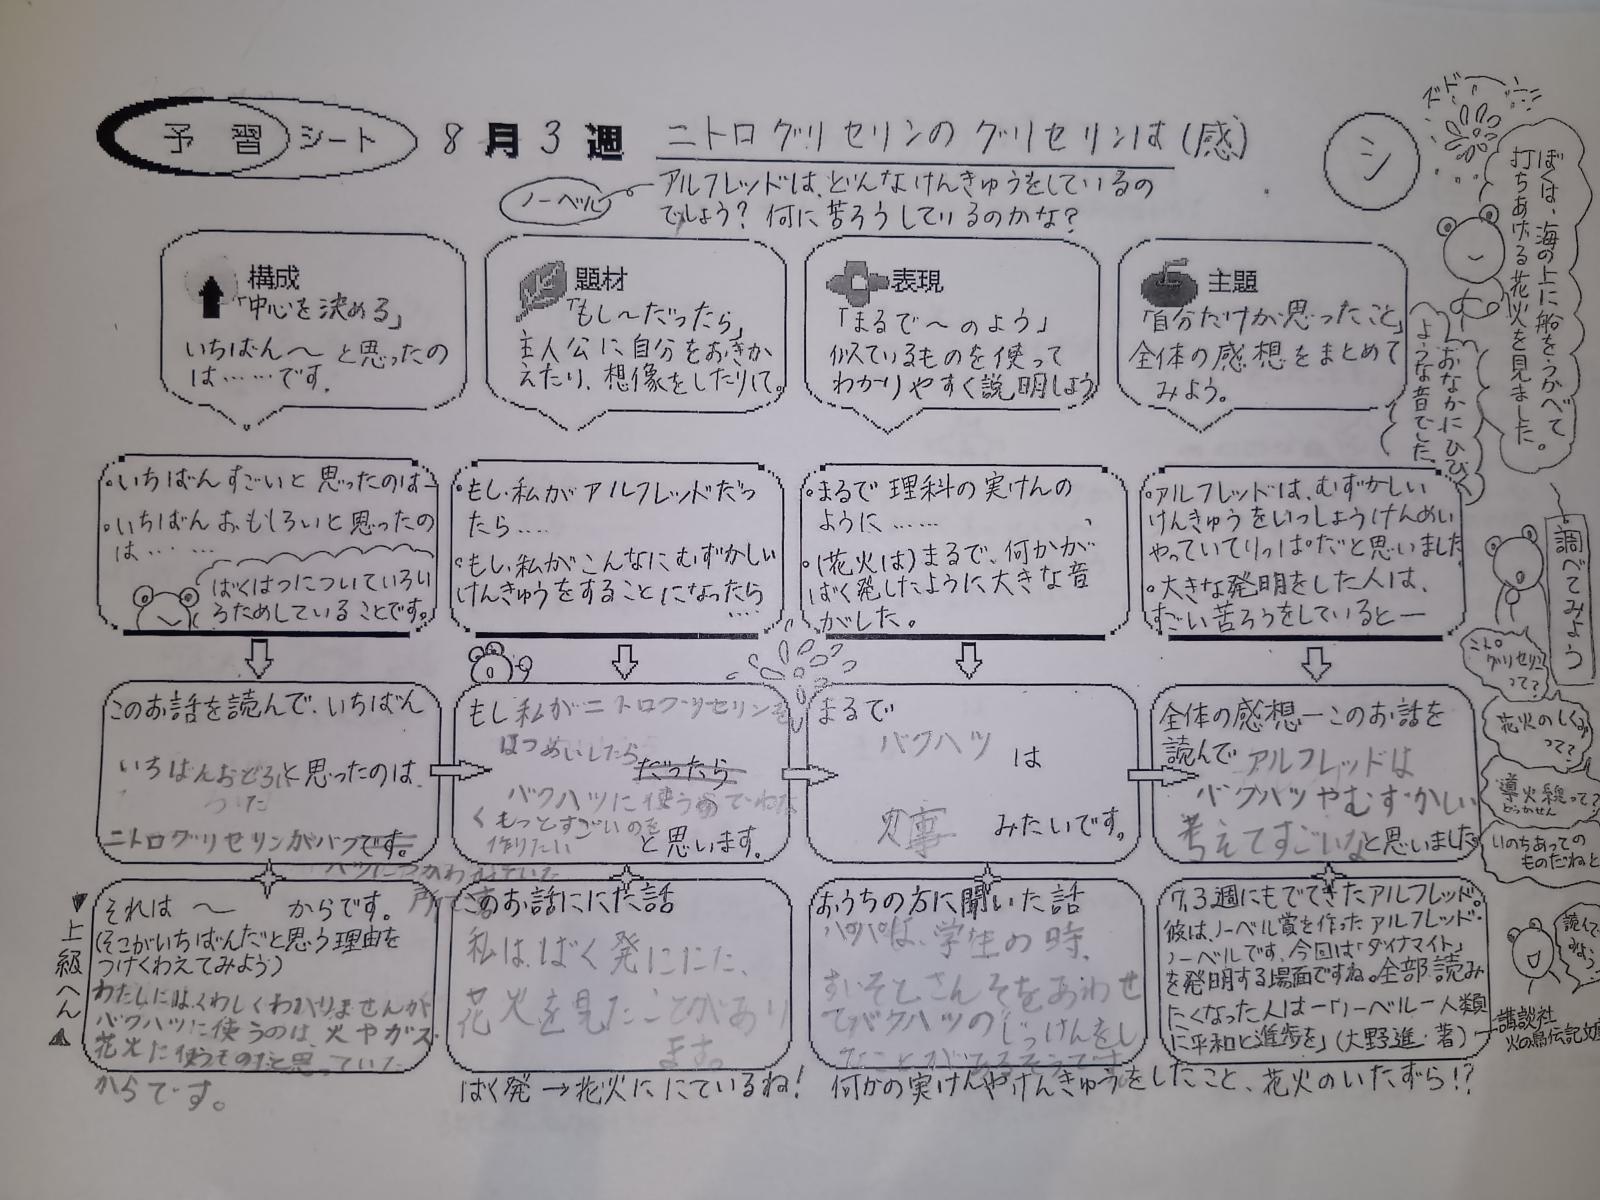 予習シート 8月3週 ニトログリセリンのグリセリンは(感)
シ
ノーベル
アルフレッドは、どんなけんきゅうをしているの
でしょう? 何に苦ろうしているのかな?
構成
「中心を決める」
いちばん〜と思ったの
は……です。
題材
「もし〜だったら」
主人公に自分をおきか
えたり、想像をしたりして。
表現
「まるで〜のよう」
似ているものを使って
わかりやすく説明しよう
主題
「自分だけが思ったこと」
全体の感想をまとめて
みよう。
ドド
ぼくは、海の上に船をうかべて
打ちあげる花火を見ました。
おなかにひびく
ような音でした。
・いちばんすごいと思ったのは―
・いちばんおもしろいと思ったの
は……
ばくはつについていろい
ろためしていることです。
・もし私がアルフレッドだっ
たら……
・もし私がこんなにむずかしい
けんきゅうをすることになったら
……
・まるで理科の実けんの
ように……
・(花火は)まるで、何かが
ばく発したように大きな音
がした。
・アルフレッドは、むずかしい
けんきゅうをいっしょうけんめい
やっていてりっぱだと思いました
・大きな発明をした人は、
すごい苦ろうをしていると―
調べてみよう
グリセリン
って?
花火のしくみ
って?
導火線って?
どうかせん
いのちあっての
ものだねと
このお話を読んで、いちばん
いちばんおどろ
いたと思ったのは、
ニトログリセリンがバクです。
ハツにつかわれていた
所です
もし私がニトログリセリンを
はつめいしたら
だったら
バクハツに使うのでわな
くもっとすごいのを
作りたい
と思います。
まるで
バクハツ
は
火事
みたいです。
全体の感想―このお話を
読んでアルフレッドは
バクハツやむずかしい
考えてすごいなと思いました。
▼上級へん▲
それは〜からです。
(そこがいちばんだと思う理由を
つけくわえてみよう)
わたしにはくわしくわかりませんが
バクハツに使うのは、火やガス
花火に使うものだと思っていた
からです。
このお話ににた話
私は、ばく発ににた、
花火を見たことがあり
ます。
ばく発→花火ににているね!
おうちの方に聞いた話
パパは、学生の時、
すいそとさんそをあわせ
てバクハツのじっけんをし
たことがあるそうです
何かの実けんやけんきゅうをしたこと、花火のいたずら!?
7.3週にもでてきたアルフレッド。
彼は、ノーベル賞を作ったアルフレッド・
ノーベルです。今回は「ダイナマイト」
を発明する場面ですね。全部読み
たくなった人は―「ノーベル―人類
に平和と進歩を」(大野進・著)
講談社
火の鳥伝記文庫
読んで
みよう